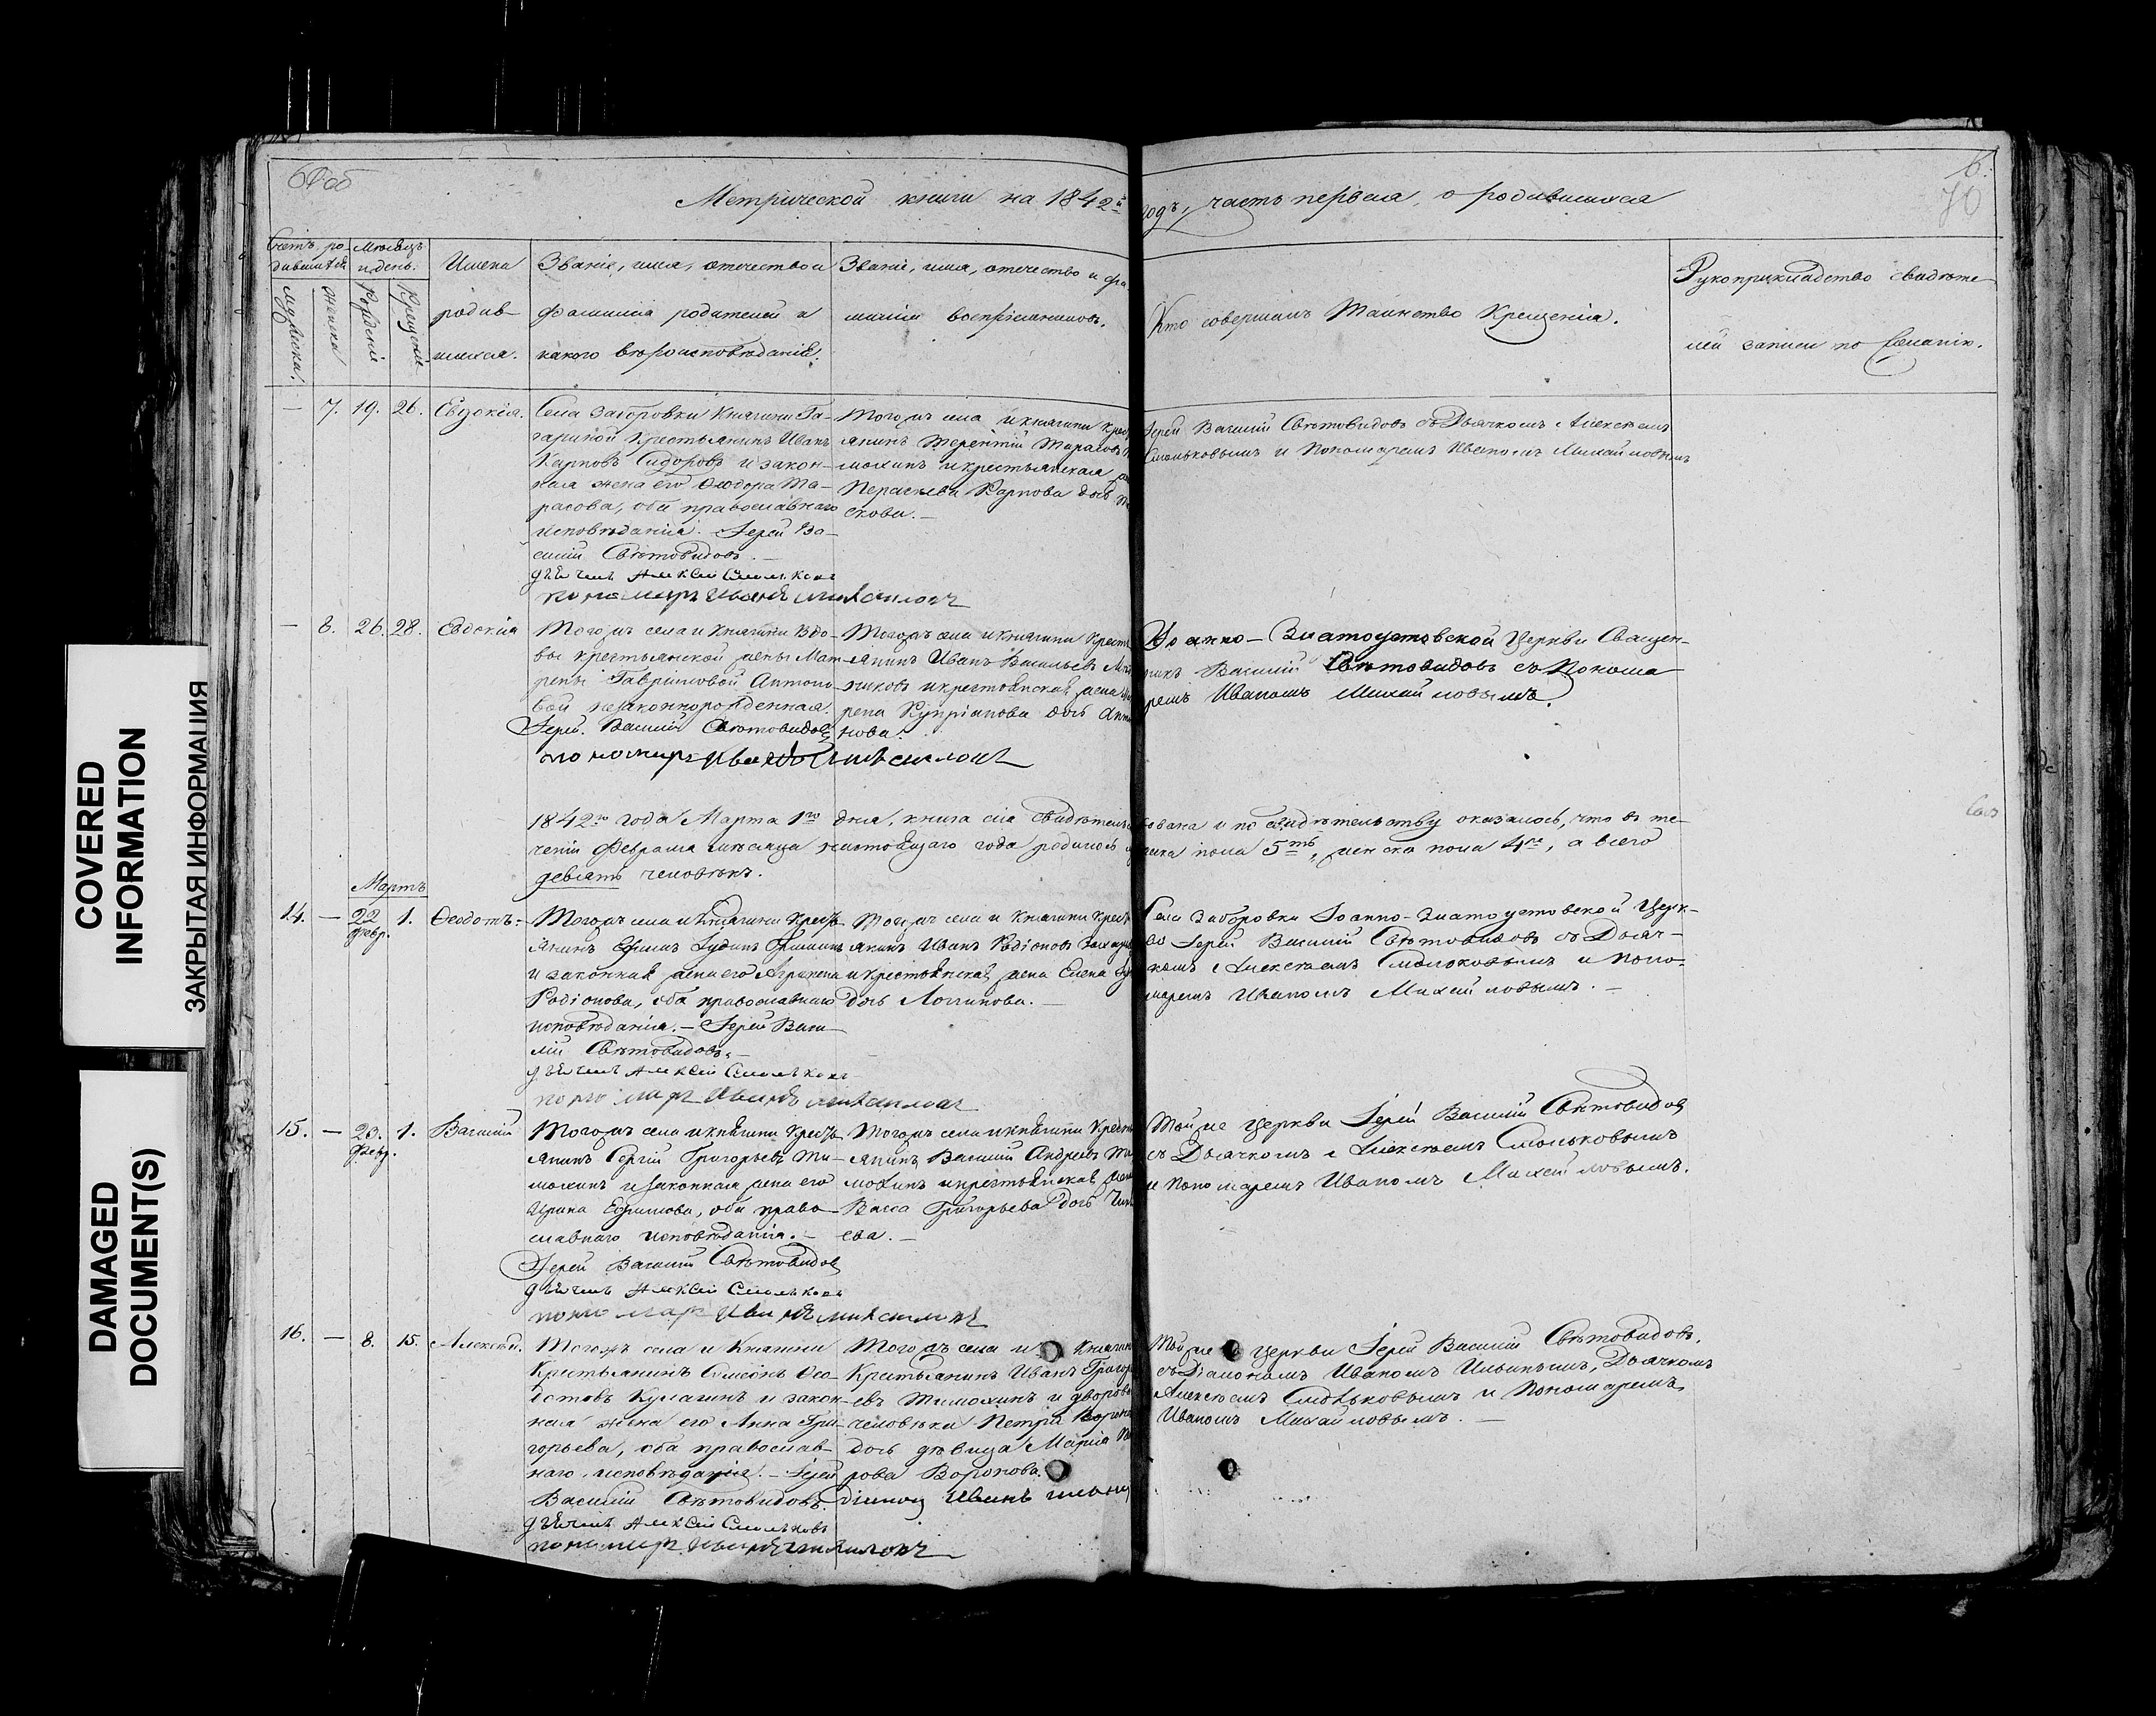 69 об
6.
70
Метрической книги на 1842й
годъ, часть первая, о родившихся
Счетъ ро-
дившихся
Мѣсяцъ
и день.
мужеска.
женска
Рожденія
Крещенія
Имена
родив-
шихся.
Званіе, имя, отечество и
фамилія родителей и
какого вѣроисповѣданія.
Званіе, имя, отечество и фа-
милія воспріемниковъ.
Кто совершалъ Таинство Крещенія.
Рукоприкладство свидѣте-
лей записи по желанію.
— 7. 19. 26. Евдокія.
Села Заборовки Княгини Га-
гариной Крестьянинъ Иванъ
Карповъ Сидоровъ и закон-
ная жена его Ѳеодора Та-
расова, оба православнаго
исповѣданія. Іерей Ва-
силій Свѣтовидовъ.
дьячекъ Алексѣй Смольковъ
пономарь Иванъ Михайловъ
Тогожъ села и княгини
янинъ Терентій Тарасовъ
мохинъ и крестьянская
Параскева Карпова дочь
скова.—
Іерей Василій Свѣтовидовъ съ Дьячкомъ Алексѣемъ
Смольковымъ и Пономаремъ Иваномъ Михайловымъ
— 8. 26. 28. Евдокія
Тогожъ села и Княгини вдо-
вы крестьянской жены Мат-
рены Гавриловой Антоно-
вой незаконнорожденная.
Іерей Василій Свѣтовидовъ
пономарь Иванъ Михайловъ
Тогожъ села и княгини Крест
янинъ Иванъ Васильевъ
никовъ и крестьянская жена
рена Купріанова дочь Анто
нова.
Іоанно-Златоустовской Церкви Священ-
никъ Василій Свѣтовидовъ съ Понома
ремъ Иваномъ Михайловымъ.
1842го года Марта 1го дня, книга сія свидѣтельс
твована и по свидѣтельству оказалось, что въ те-
ченіи Февраля мѣсяца настоящаго года родилось
жеска пола 5ть, женска пола 4ре, а всего
девять человѣкъ.
Мартъ
14. — 22 февр. 1. Ѳеодотъ.
Тогожъ села и Княгини Кресть-
янинъ
и законная жена его Агрипена
Родіонова, оба православнаго
исповѣданія.— Іерей Васи-
лій Свѣтовидовъ.—
дьячекъ Алексѣй Смольковъ
пономарь Иванъ Михайловъ
Тогожъ села и Княгини Крест
янинъ Иванъ Родіоновъ
и крестьянская жена Елена
дочь Логинова.—
Села Заборовки Іоанно-Златоустовской Церк-
ви Іерей Василій Свѣтовидовъ съ Дьяч-
комъ Алексѣемъ Смольковымъ и Поно-
маремъ Иваномъ Михайловымъ.—
15. — 23. февр. 1. Василій
Тогожъ села и княгини Кресть-
янинъ Сергій Григорьевъ Ти-
мохинъ и законная жена его
Ирина Ефимова, оба право-
славнаго исповѣданія.—
Іерей Василій Свѣтовидовъ
дьячекъ Алексѣй Смольковъ
пономарь Иванъ Михайловъ
Тогожъ села и княгини Крест
янинъ Василій Андреевъ Ти
мохинъ и крестьянская жена
Васса Григорьева дочь
ева.—
Той же Церкви Іерей Василій Свѣтовидовъ
съ Дьячкомъ Алексѣемъ Смольковымъ
и Пономаремъ Иваномъ Михайловымъ.
16. — 8. 15. Алексѣй.
Тогожъ села и Княгини
Крестьянинъ Симеонъ Ѳео-
дотовъ Кулагинъ и закон-
ная жена его Анна Гри-
горьева, оба православ-
наго исповѣданія.— Іерей
Василій Свѣтовидовъ.
дьячекъ Алексѣй Смольковъ
пономарь Иванъ Михайловъ
Тогожъ села и Княгини
Крестьянинъ Иванъ Григор
евъ Тимохинъ и дворова
человѣка Петра Ворона
дочь дѣвица Марія
рова Воронова.
діаконъ Иванъ
Той же церкви Іерей Василій Свѣтовидовъ,
съ Діакономъ Иваномъ Ильинымъ, Дьячкомъ
Алексѣемъ Смольковымъ и Пономаремъ
Иваномъ Михайловымъ.—
COVERED
INFORMATION
ЗАКРЫТАЯ ИНФОРМАЦИЯ
DAMAGED
DOCUMENT(S)